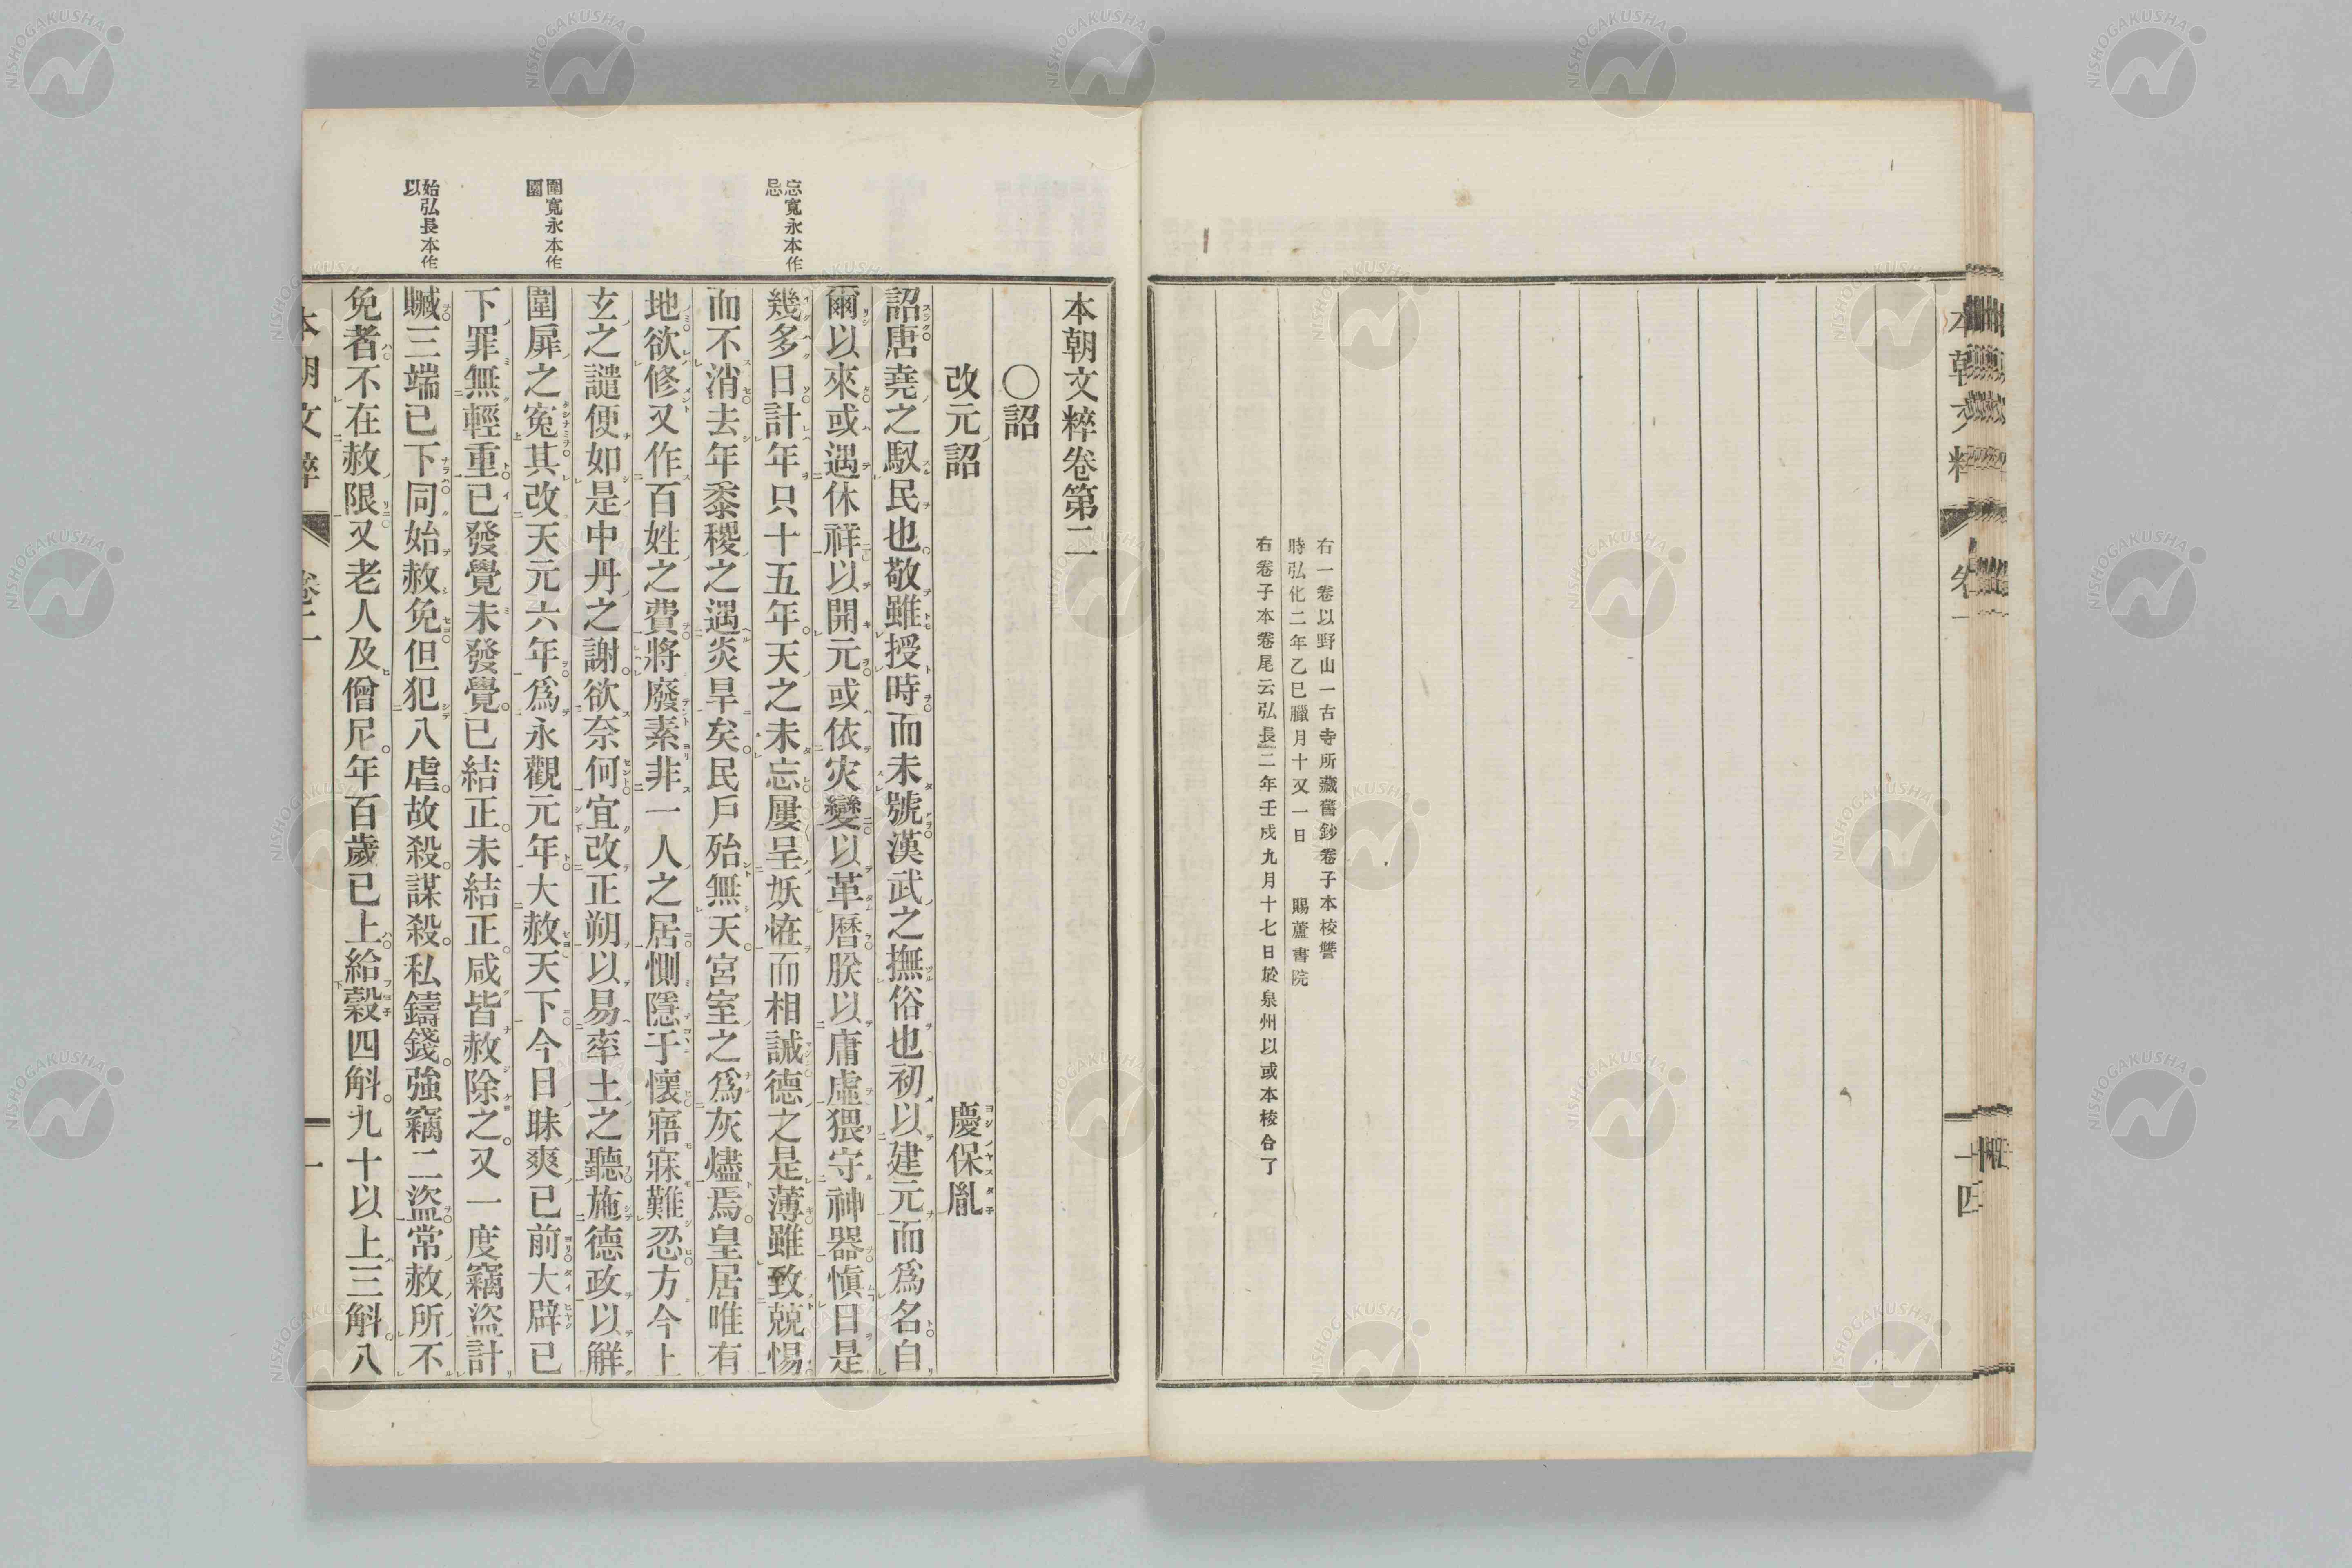 右一卷以野山一古寺所藏舊鈔卷子本校讐
時弘化二年乙巳臘月十又一日 賜蘆書院
右卷子本卷尾云弘長二年壬戌九月十七日於泉州以或本校合了
本朝文粹卷第二
〇詔
改元詔 慶保胤
詔唐堯之馭民也敬雖授時而未號漢武之撫俗也初以建元而爲名自
爾以來或遇休祥以開元或依灾變以革曆朕以庸虛猥守神器愼日是
幾多日計年只十五年天之未忘屢呈妖恠而相誡德之是薄雖致兢惕
而不消去年黍稷之遇炎旱矣民戶殆無天宮室之爲灰燼焉皇居唯有
地欲修又作百姓之費將廢素非一人之居惻隱于懷寤寐難忍方今上
玄之譴便如是中丹之謝欲奈何宜改正朔以易率土之聽施德政以解
圍扉之寃其改天元六年爲永觀元年大赦天下今日昧爽已前大辟已
下罪無輕重已發覺未發覺已結正未結正咸皆赦除之又一度竊盜計
贓三端已下同始赦免但犯八虐故殺謀殺私鑄錢強竊二盜常赦所不
免者不在赦限又老人及僧尼年百歲已上給穀四斛九十以上三斛八
忘寬永本作
忌
圍寬永本作
圄
始弘長本作
以
本朝文粹 卷二 一
本朝文粹 卷一 十四
NISHOGAKUSHA